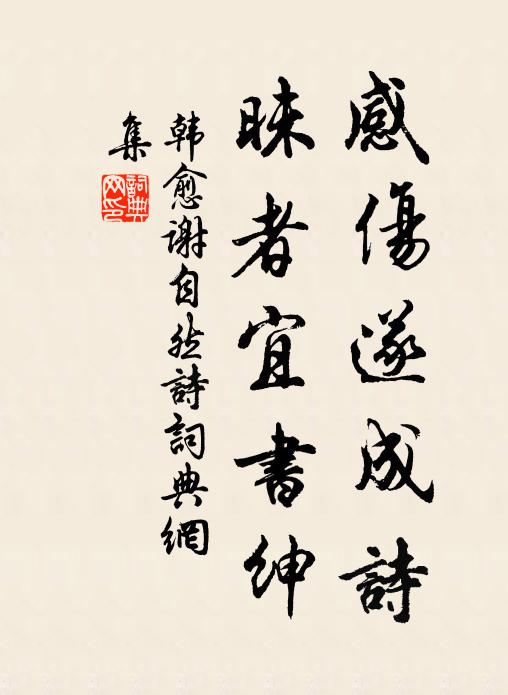 感傷遂成詩
昧者宜書紳
韩愈谢自然詩詞典網
集
詞典網印